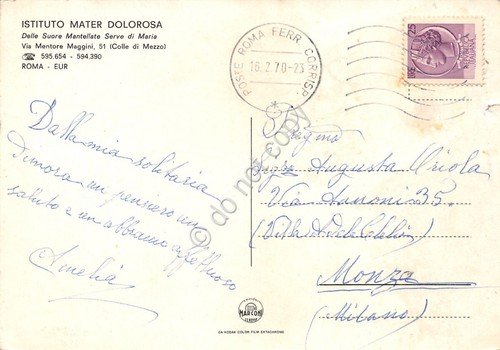 ISTITUTO MATER DOLOROSA
Delle Suore Mantellate Serve di Maria
Via Mentore Maggini, 51 (Colle di Mezzo)
☎ 595.654 - 594.390
ROMA - EUR
POSTE ROMA FERR. CORRISP.
16.2.70-23
LIRE 25
ITALIANA
Dalla mia solitaria
dimora un pensiero un
saluto e un abbraccio affettuoso
Amelia
Augusta Oriola
Via 35.
(Villa
Monza
(Milano)
do not copy
MARCONI
GENOVA
DA KODAK COLOR FILM EKTACHROME